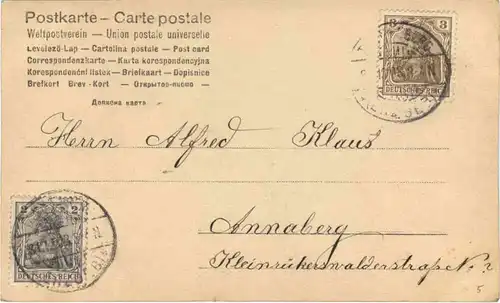 Postkarte – Carte postale
Weltpostverein – Union postale universelle
Levelező-Lap – Cartolina postale – Post card
Correspondenzkarte – Karta korespondencyjna
Korespondenční lístek – Briefkaart – Dopisnice
Brefkort Brev-Kort – Открытое письмо –
Дописна карта
3 3
DEUTSCHES REICH
Herrn Alfred Klaus
Annaberg
Kleinrückerswalderstraße No 2
2 2
DEUTSCHES REICH
5